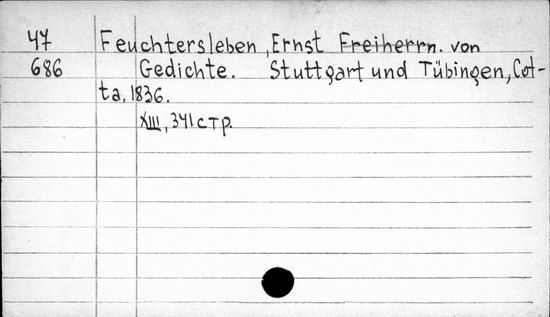 47 Feuchtersleben, Ernst Freiherrn. von
686 Gedichte. Stuttgart und Tübingen, Cot-
ta, 1836.
XIII, 341 стр.